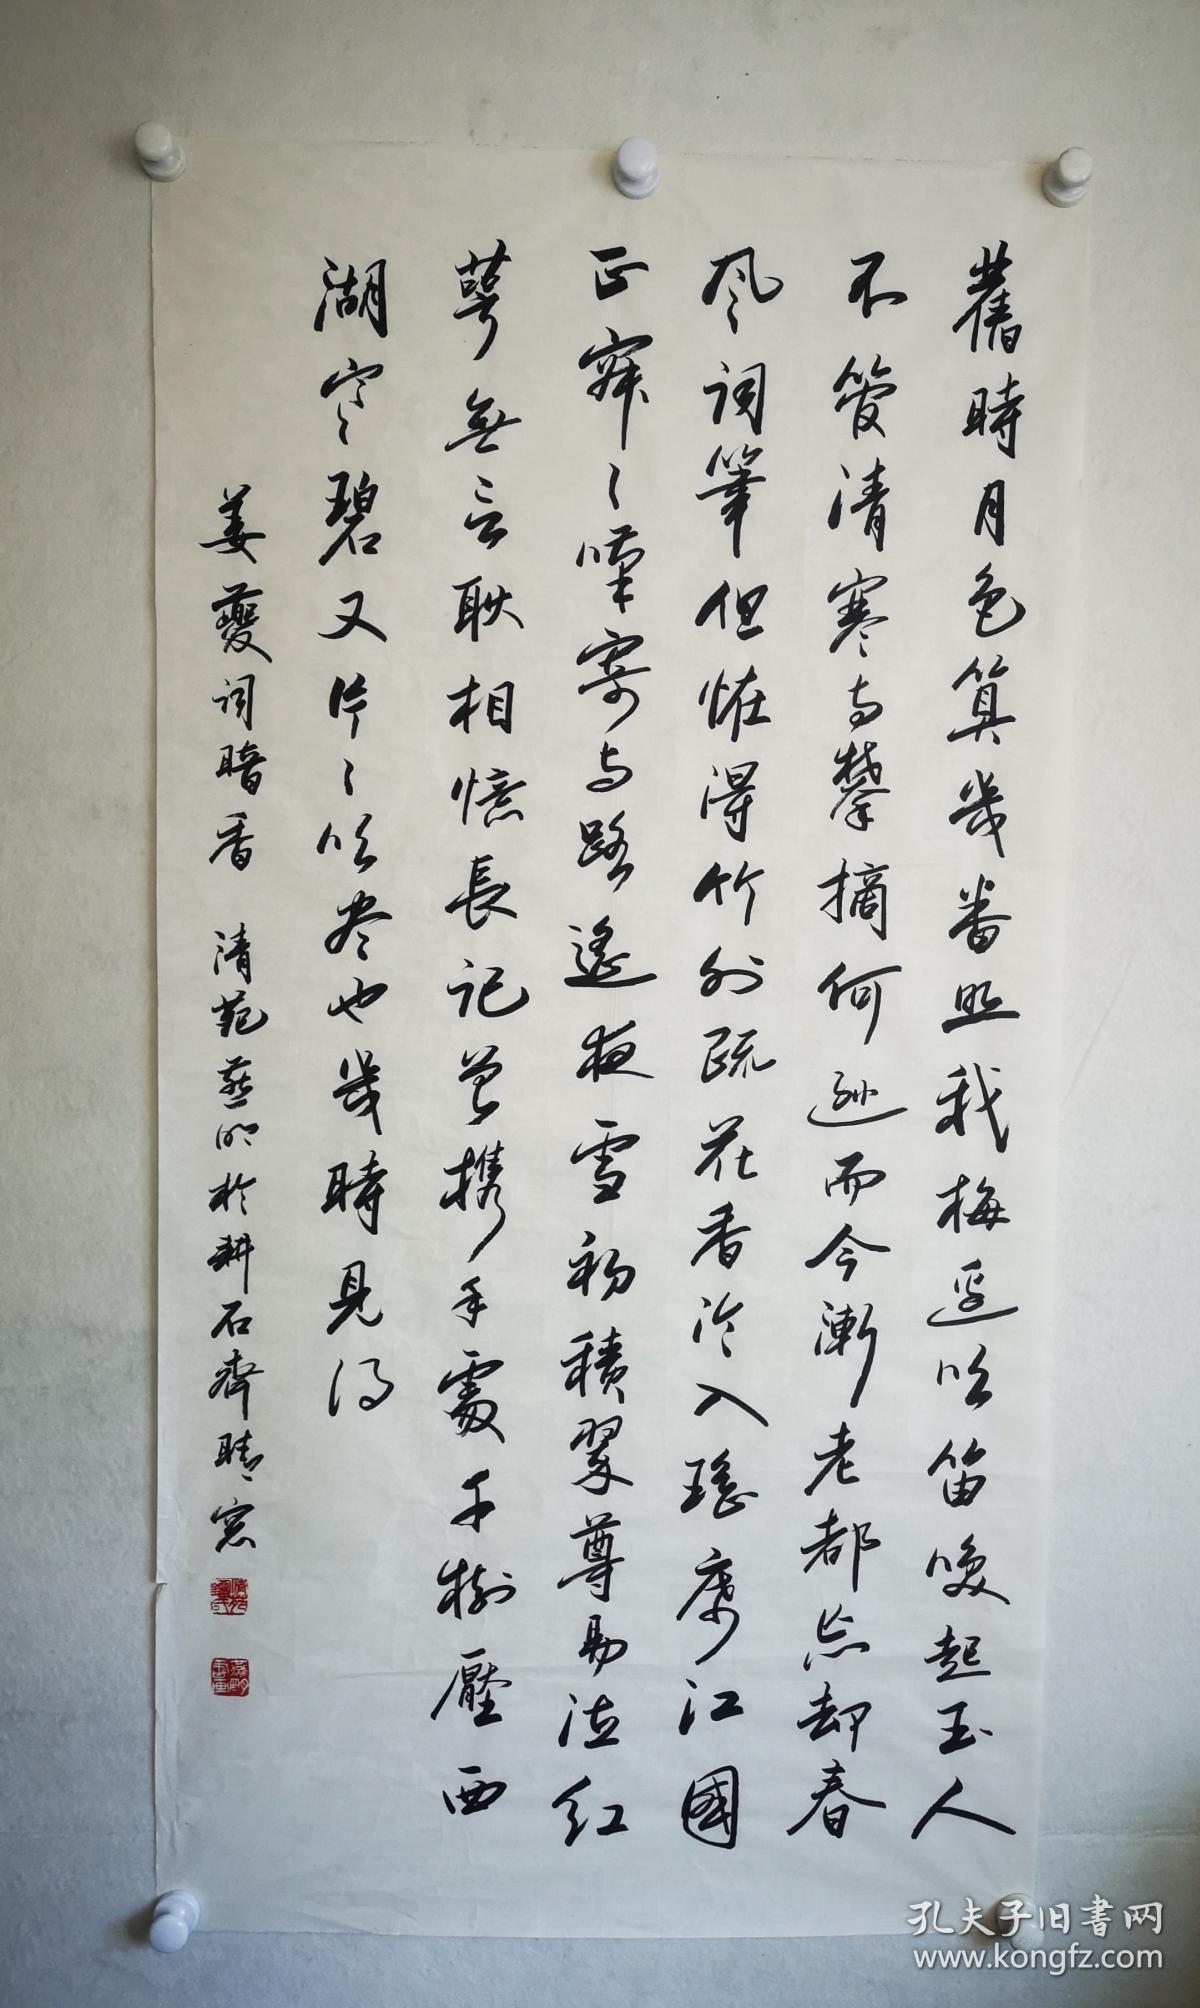 舊時月色算幾番照我梅邊吹笛喚起玉人
不管清寒与攀摘何遜而今漸老都忘却春
风词筆但恠得竹外疏花香冷入瑤席江國
正寂〻嘆寄与路遙夜雪初積翠尊易泣紅
萼無言耿相憶長記曾携手處千樹壓西
湖寒碧又片〻吹尽也幾時見得
姜夔词暗香 清苑燕明於耕石齋晴窓
孔夫子旧書网
www.kongfz.com